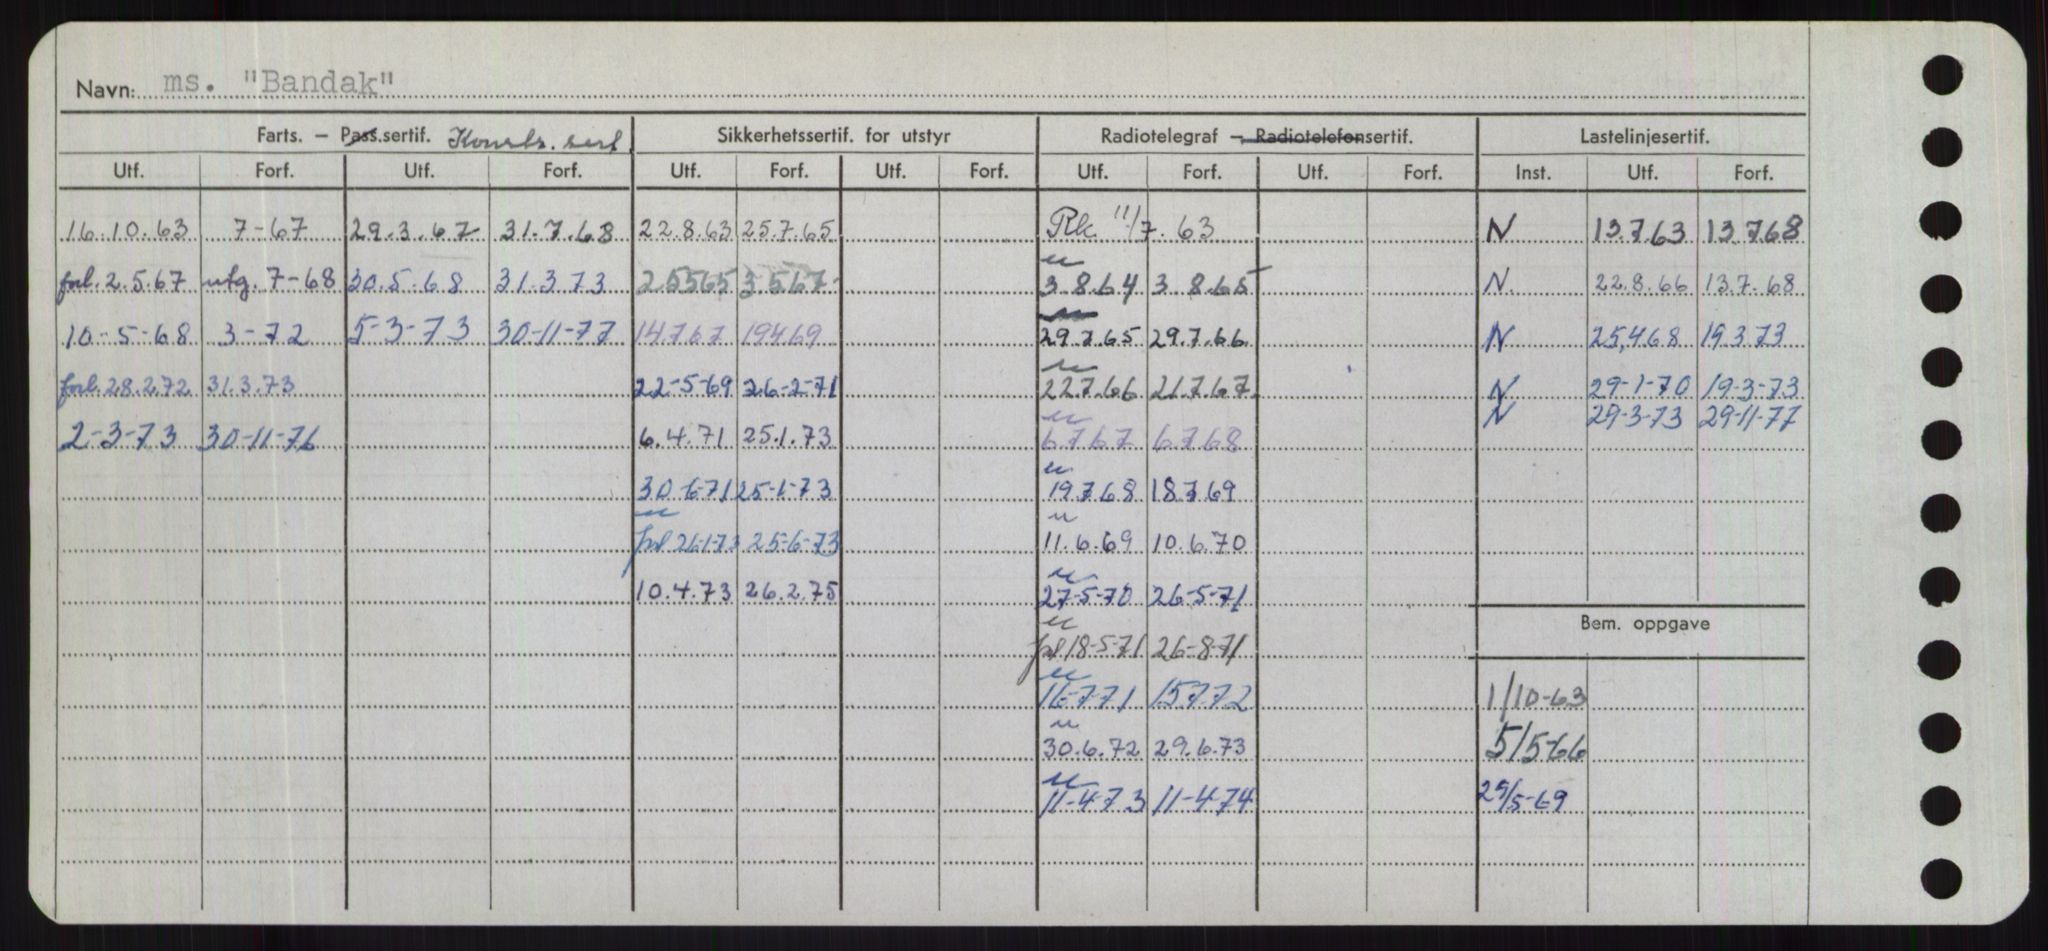 Navn: ms. "Bandak"
Farts. – Pass.sertif. Konstr. sert. Sikkerhetssertif. for utstyr Radiotelegraf – Radiotelefonsertif. Lastelinjesertif.
Utf. Forf. Utf. Forf. Utf. Forf. Utf. Forf. Utf. Forf. Utf. Forf. Inst. Utf. Forf.
16.10.63 7-67 29.3.67 31.7.68 22.8.63 25.7.65 Rk. 11/7.63 N 13.7.63 13.7.68
forl. 2.5.67 utg. 7-68 30.5.68 31.3.73 2.5.65 3.5.67 N 3.8.64 3.8.65 N. 22.8.66 13.7.68
10-5-68 3-72 5-3-73 30-11-77 14.7.67 19.4.69 N 29.7.65 29.7.66 N 25.4.68 19.3.73
forl. 28.2.72 31.3.73 22-5-69 26-2-71 N 22.7.66 21.7.67 N 29-1-70 19-3-73
N 29-3-73 29-11-77
2-3-73 30-11-76 6.4.71 25.1.73 N 6.7.67 6.7.68
30-6-71 25-1-73 N 19.7.68 18.7.69
N forl 26-1-73 25-6-73 N 11.6.69 10.6.70
10.4.73 26.2.75 N 27-5-70 26-5-71
Bem. oppgave
N forl 18-5-71 26-8-71
N 16-7-71 15.7.72 1/10-63
N 30.6.72 29.6.73 5/5-66
N 11-4-73 11-4-74 29/5-69